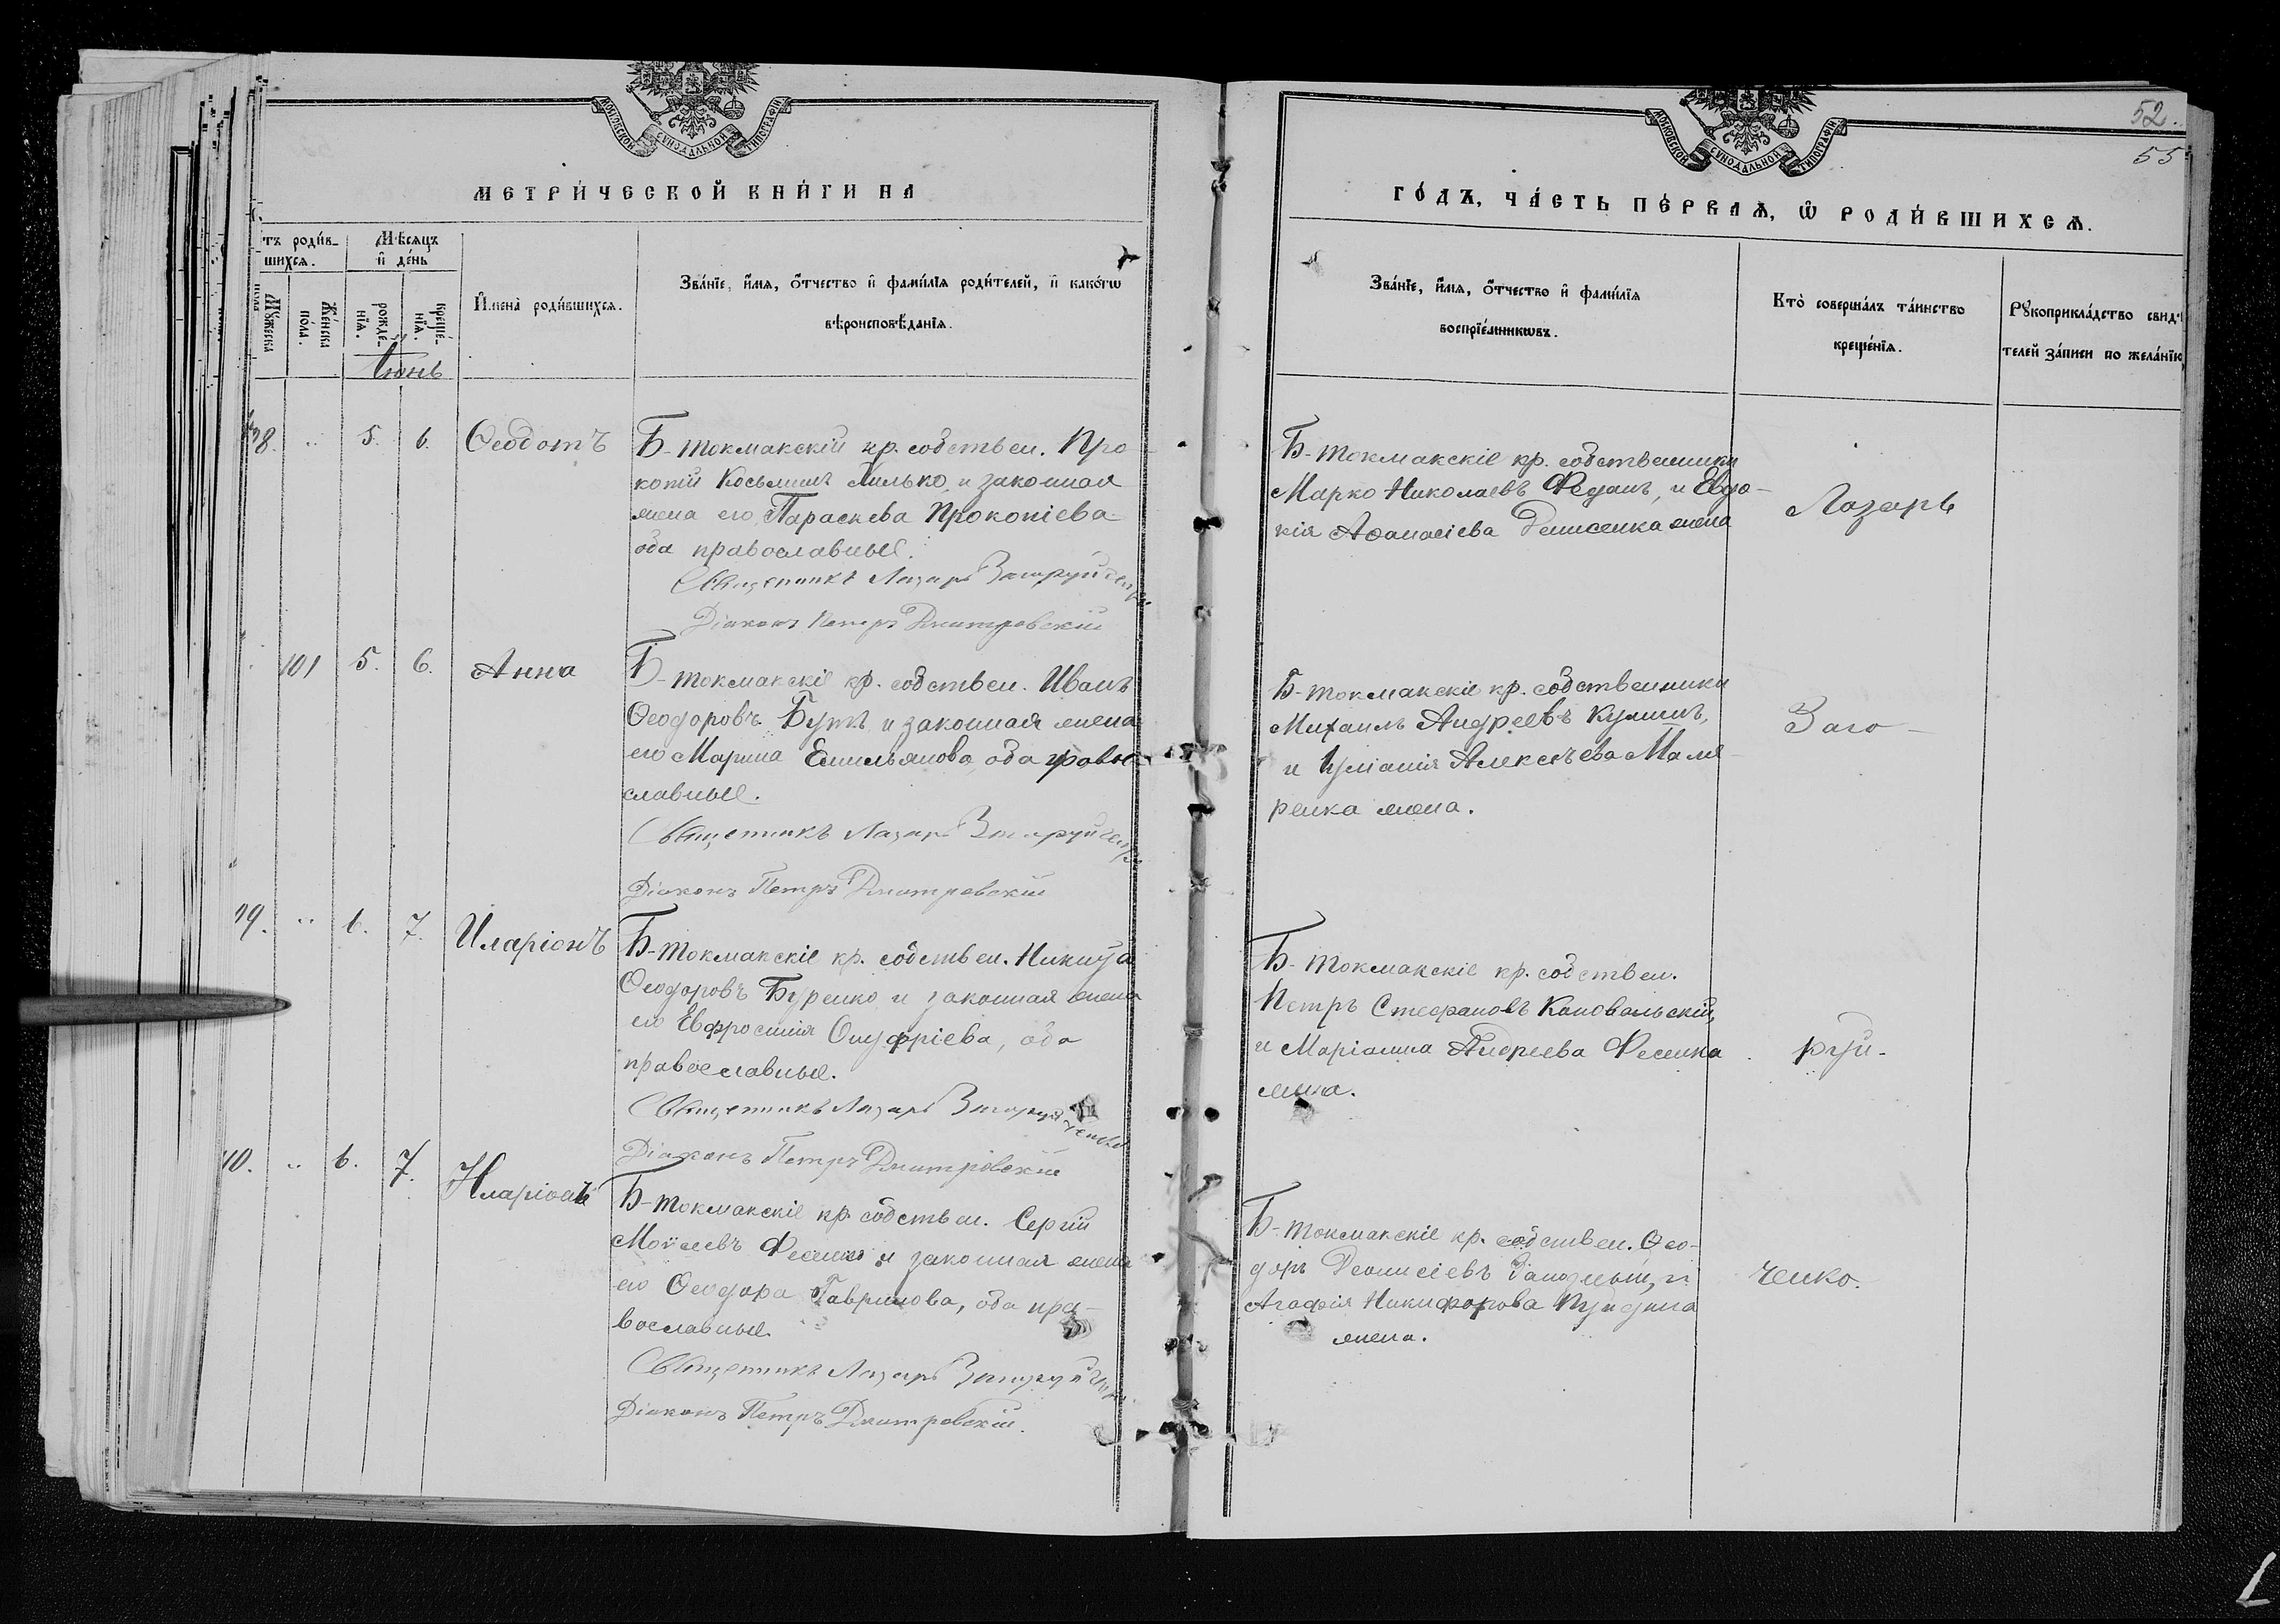 МОСКОВСКОЙ СѴНОДАЛЬНОЙ ТИПОГРАФІИ
МЕТРИ́ЧЕСКОЙ КНИ́ГИ НА
тъ роди́в-
шихсѧ.
Мѣсѧцъ
и де́нь
Мꙋжеска
пола
Же́нска
по́ла.
рожде́-
нїѧ.
креще́-
нїѧ.
Имена̀ роди́вшихсѧ.
Зва́нїе, и́мѧ, ѻ҆́тчество и фами́лїѧ роди́телей, и како́гѡ
вѣроисповѣ́данїѧ.
Іюнь
38. " 5. 6. Ѳеодотъ
Б-токмакскій кр. собствен. Про-
копій Косьминъ и законная
жена его Параскева Прокопіева
оба православные.
Священникъ Лазарь Загоруйченко
Діаконъ Петръ Дмитровскій
101 5. 6. Анна
Б-токмакскіе кр. собствен. Иванъ
Ѳеодоровъ Бутъ и законная жена
его Марина Емильянова, оба право-
славные.
Священникъ Лазарь Загоруйченко
Діаконъ Петръ Дмитровскій
39. " 6. 7. Иларіонъ
Б-токмакскіе кр. собствен. Никита
Ѳеодоровъ Буренко и законная жена
его Евфросинія Онуфріева, оба
православные.
Священникъ Лазарь Загоруйченко
Діаконъ Петръ Дмитровскій
40. " 6. 7. Иларіонъ
Б-токмакскіе кр. собствен. Сергій
Моѵсеевъ Фесенко и законная жена
его Ѳеодора Гаврилова, оба пра-
вославные.
Священникъ Лазарь Загоруйченко
Діаконъ Петръ Дмитровскій.
52.
55
МОСКОВСКОЙ СѴНОДАЛЬНОЙ ТИПОГРАФІИ
ГО́ДЪ, ЧА́СТЬ ПЕ́РВАѦ, Ѡ РОДИ́ВШИХСѦ.
Зва́нїе, и́мѧ, ѻ҆́тчество и фами́лїѧ
воспрїе́мникѡвъ.
Кто̀ соверша́лъ та́инство
креще́нїѧ.
Рꙋкоприкла́дство свидѣ-
телей за́писи по жела́нїю
Б-токмакскіе кр. собственники
Марко Николаевъ и Евдо-
кія Аѳанасіева Денисенка жена
Лазарь
Б-токмакскіе кр. собственники
Михаилъ Андреевъ Кулишъ,
и Іуліанія Алексѣева Маля-
ренка жена.
Заго-
Б-токмакскіе кр. собствен.
Петръ Стефановъ Коновальскій,
и Маріанна Андреева Фесенка
жена.
руй-
Б-токмакскіе кр. собствен. Ѳео-
доръ Деонисіевъ и
Агафія Никифорова
жена.
ченко.